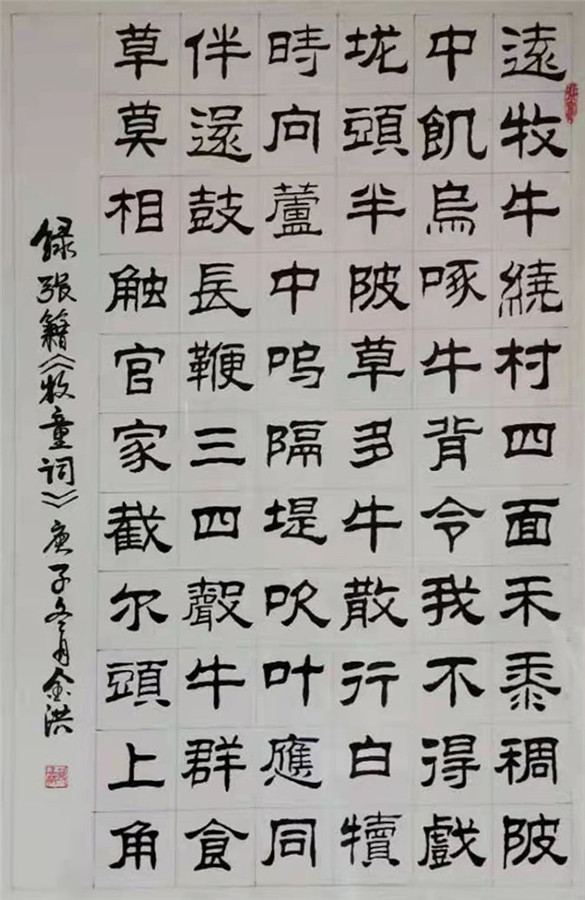 遠牧牛繞村四面禾黍稠陂
中飢烏啄牛背令我不得戲
垅頭半陂草多牛散行白犢
時向蘆中嗚隔堤吹叶應同
伴還鼓長鞭三四聲牛群食
草莫相触官家截尔頭上角
録张籍《牧童词》庚子冬月金洪